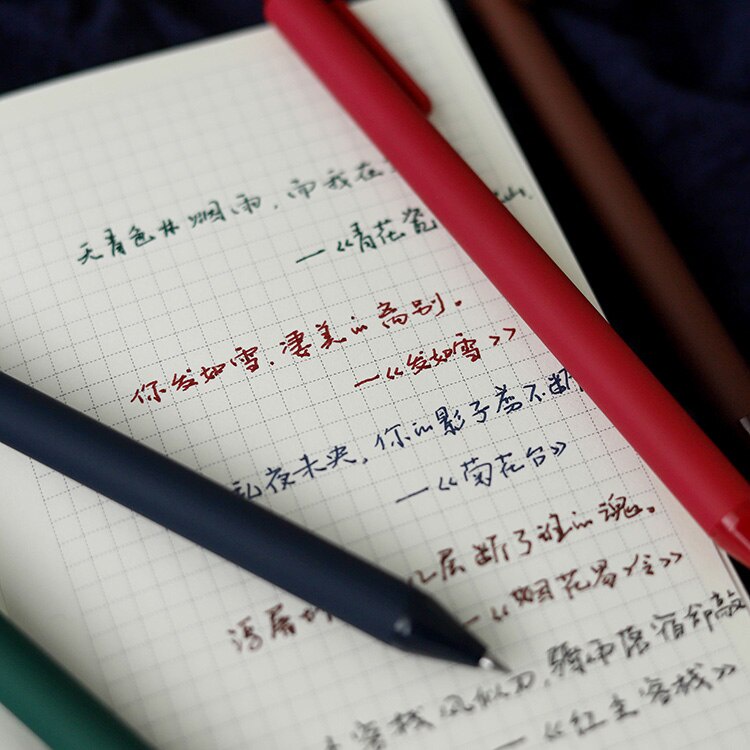 天青色等烟雨，而我在
—《青花瓷
你发如雪，凄美的离别。
—《发如雪》
夜未央，你的影子剪不断
—《菊花台》
浮屠 层断了谁的魂。
—《烟花易冷》
客栈风似刀，骤雨落宿命敲
—《红尘客栈》